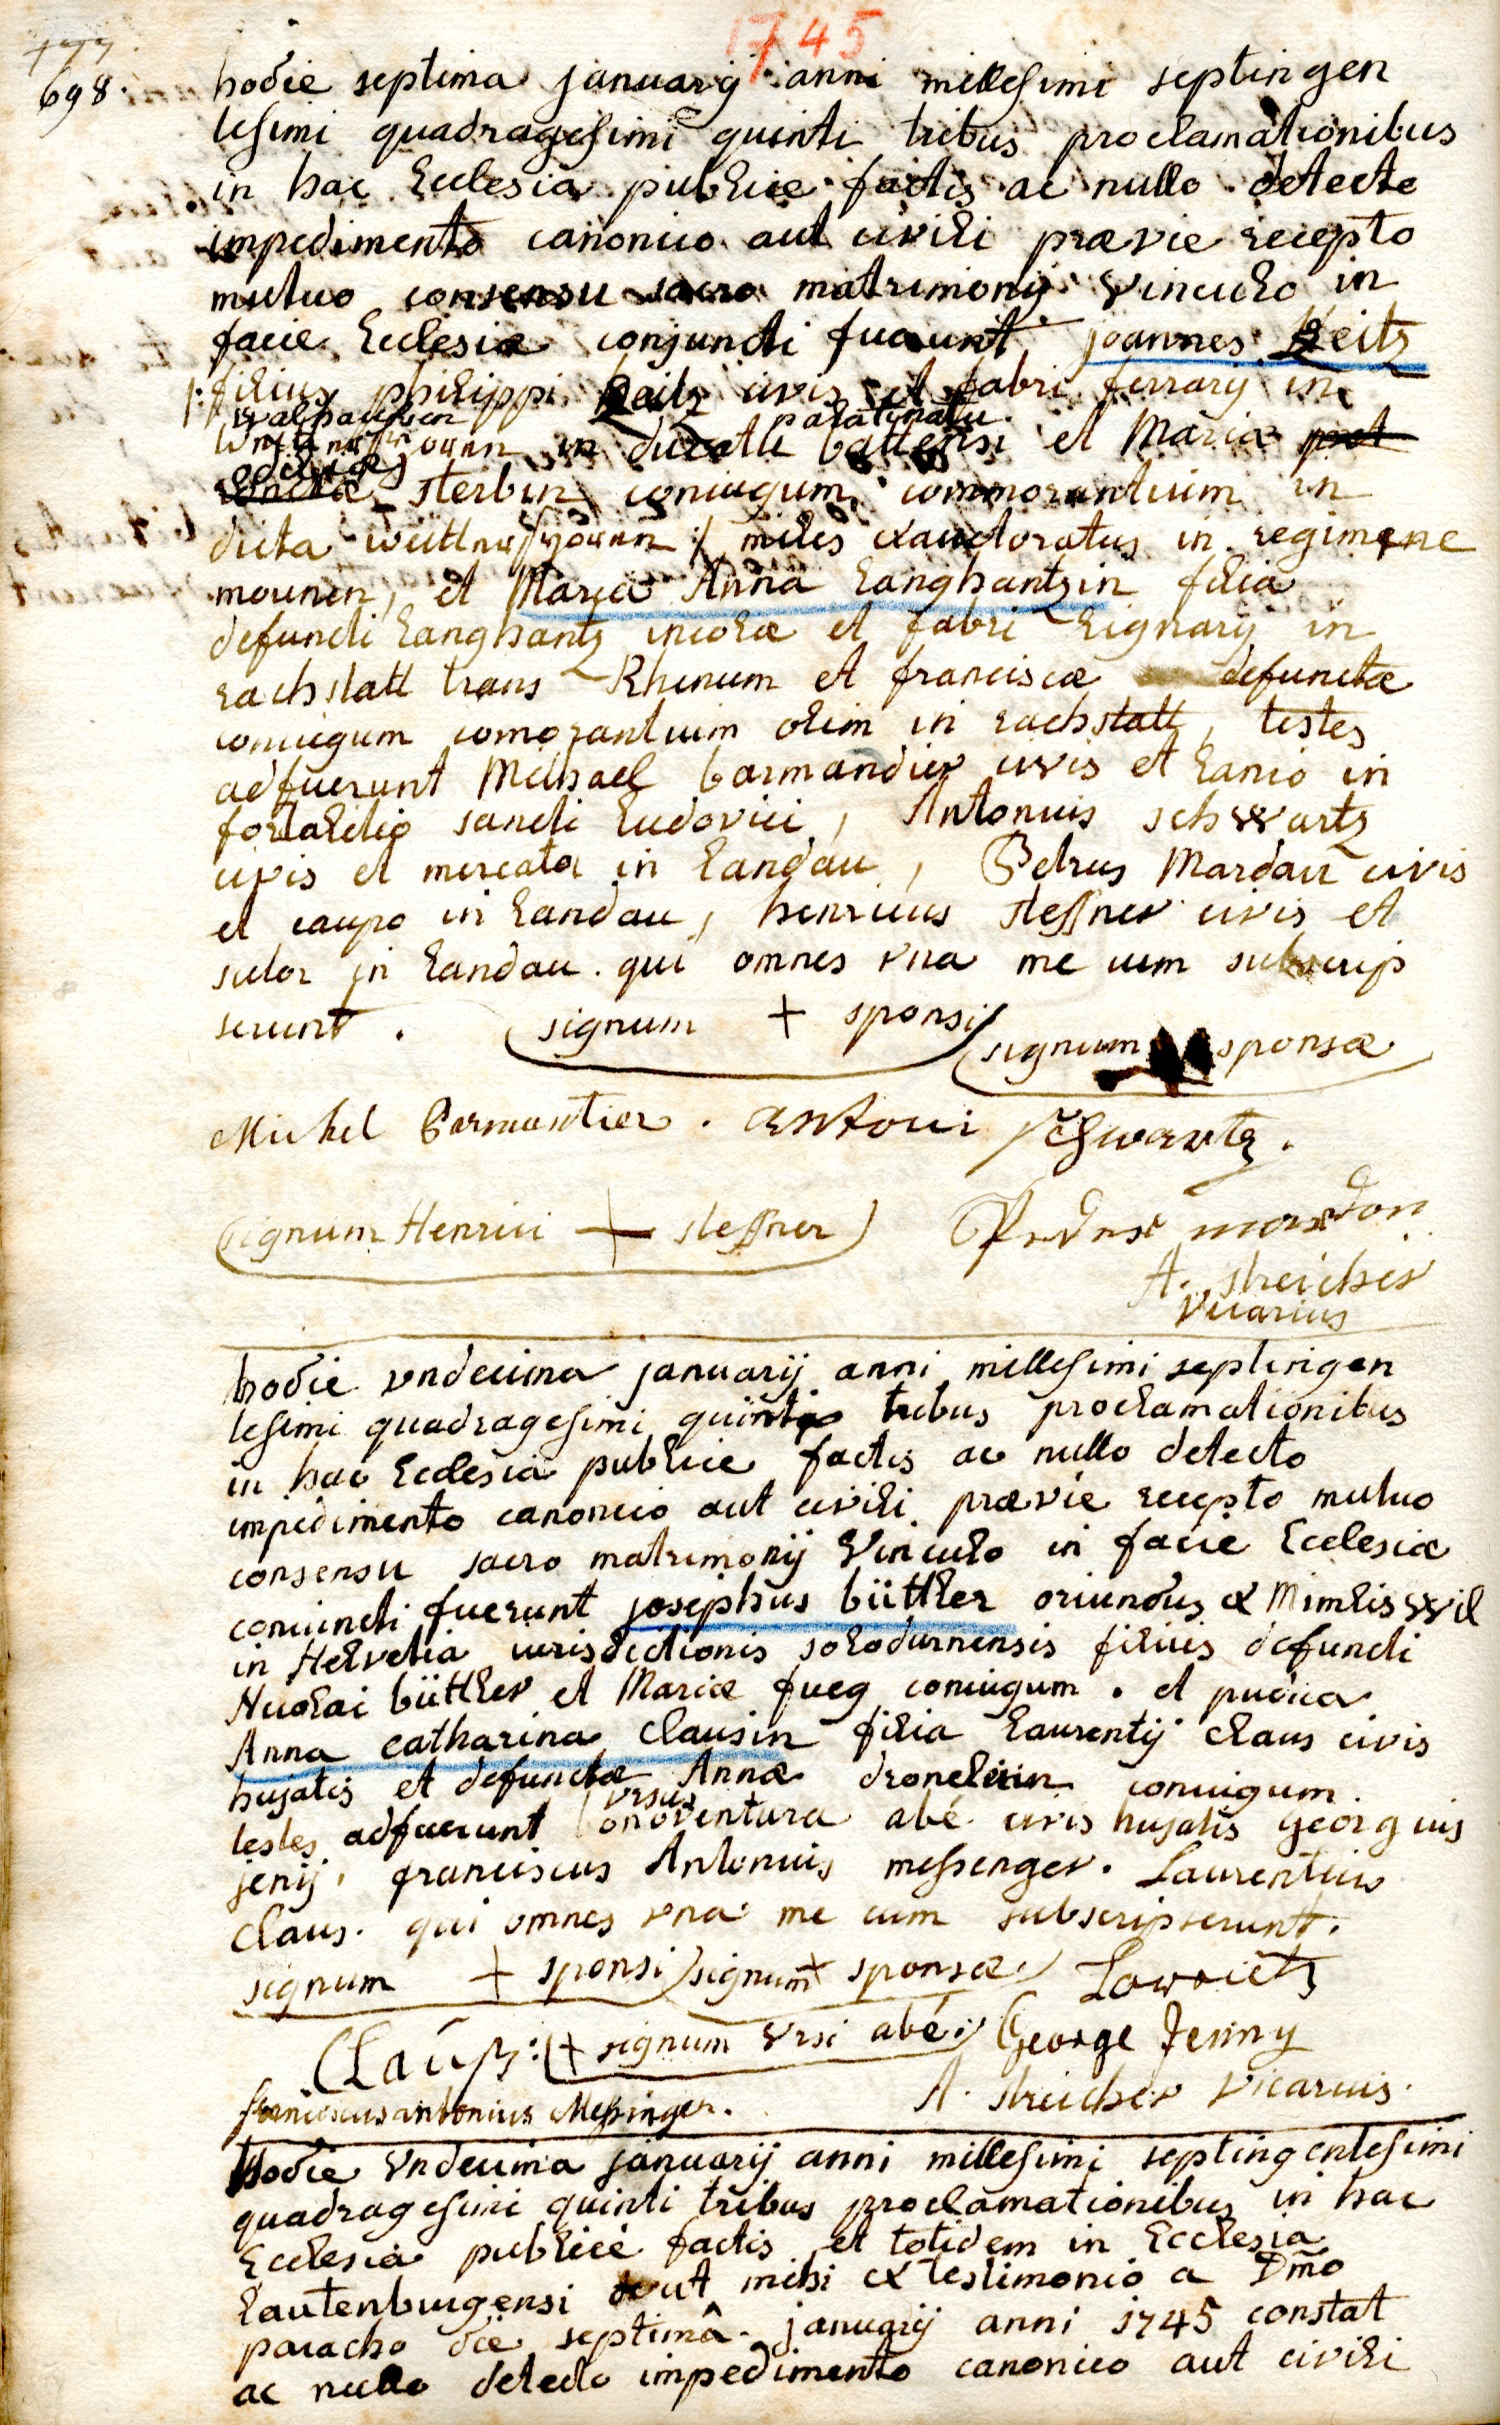 1745
698.
hodie septima januarij anni millesimi septingen
tesimi quadragesimi quinti tribus proclamationibus
in hac Ecclesia publice factis ac nullo detecto
impedimento canonico aut civili prævie recepto
mutuo consensu sacro matrimonij vinculo in
facie Ecclesiæ conjuncti fuerunt joannes
filius philippi civis et fabri ferrarij in
palatinatu
in ducatu et Mariæ
sterbin coniugum commorantium in
dicta miles exauctoratus in regimene
mounin, et Maria Anna Langhantzin filia
defuncti Langhantz incolæ et fabri lignarij in
rachstatt trans Rhenum et franciscæ defunctæ
coniugum comorantium olim in rachstatt, testes
adfuerunt Michael barmandier civis et lanio in
fortalitio sancti Ludovici, Antonius schwartz
civis et mercator in Landau, Petrus Mardau civis
et caupo in Landau, henricus steffner civis et
sutor in Landau. qui omnes vna me cum subscrip
serunt. signum + sponsi signum sponsæ
Michel Parmantier. antoni schwartz.
signum Henrici + steffner
A. streicher
vicarius
hodie vndecima januarij anni millesimi septingen
tesimi quadragesimi quinti tribus proclamationibus
in hac Ecclesia publice factis ac nullo detecto
impedimento canonico aut civili prævie recepto mutuo
consensu sacro matrimonij vinculo in facie Ecclesiæ
coniuncti fuerunt josephus büttler oriundus ex Mimliswil
in Helvetia iurisdictionis solodurnensis filius defuncti
Nicolai büttler et Mariæ fueg coniugum. et pudica
Anna catharina Clausin filia Laurentij claus civis
hujatis et defunctæ Annæ coniugum.
vrsus
testes adfuerunt bonoventura abé civis hujatis georgius
jenij, franciscus Antonius messenger. Laurentius
Claus. qui omnes vna me cum subscripserunt.
signum + sponsi signum + sponsæ Lorentz
Clauß: + signum vrsi abé George Jenny
franciscus antonius Messinger. A. streicher vicarius.
hodie vndecima januarij anni millesimi septingentesimi
quadragesimi quinti tribus proclamationibus in hac
Ecclesia publicè factis et totidem in Ecclesia
Lautenburgensi mihi ex testimonio a Dno
parocho die septimâ januarij anni 1745 constat
ac nullo detecto impedimento canonico aut civili